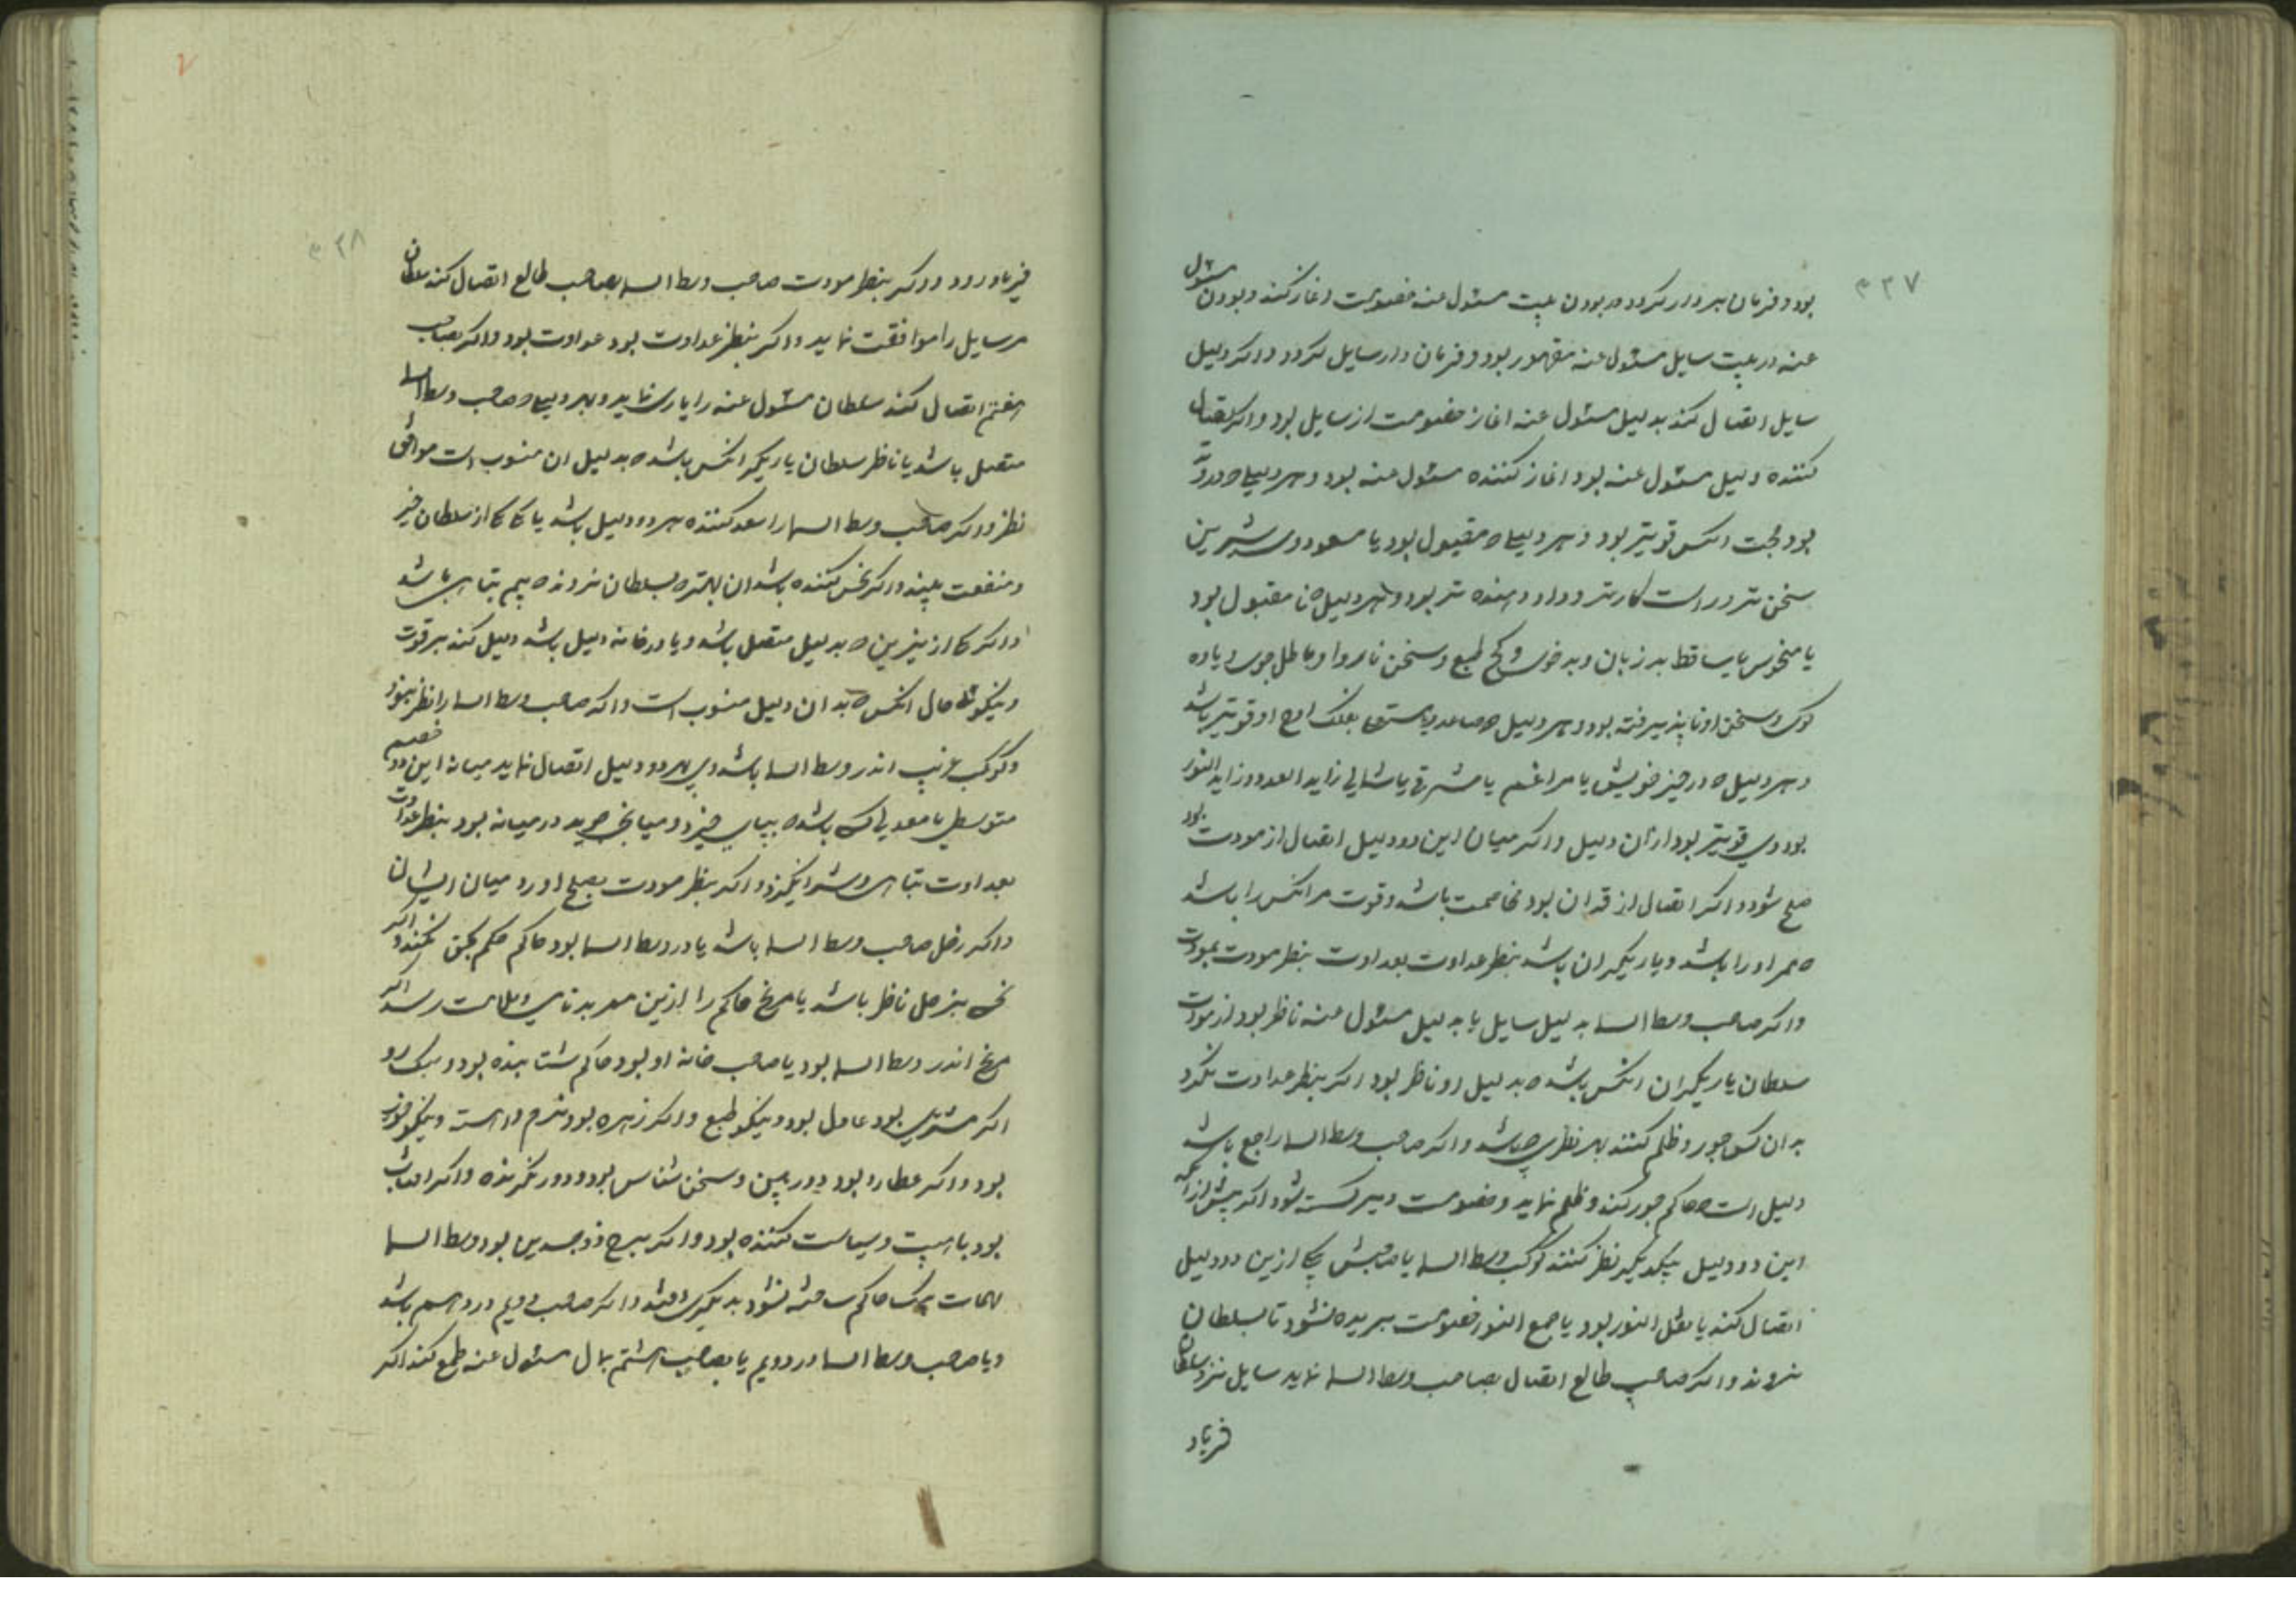 ۳۳۷
بود و فرمان بردار گردد و بودن بیت مسئول عنه خصومت اغاز کند و بودن مسئول
عنه در بیت سایل مسئول عنه مقهور بود و فرمان دار سایل گردد و اگر دلیل
سایل اتصال کند بدلیل مسئول عنه اغاز خصومت از سایل بود و اگر اتصال
کننده دلیل مسئول عنه بود اغاز کننده مسئول عنه بود و هر دلیلی که در وتد
بود حجت انکس قویتر بود و هر دلیلی که مقبول بود یا مسعود وی شیرین
سخن تر و راست کارتر و داد دهنده تر بود و هر دلیل که نا مقبول بود
یا منحوس یا ساقط بد زبان و بد خوی و کج طبع و سخن ناروا و باطل جوی و یاوه
کوی و سخن او نا پذیرفته بود و هر دلیل که صاعد و مستعلی بفلک اوج او قویتر باشد
و هر دلیل که در حیز خویش یا مراغم یا مشرقی یا شمالی زاید العدد و زاید النور
بود وی قویتر بود از ان دلیل و اگر میان این دو دلیل اتصال از مودت بود
صلح شود و اگر اتصال از قران بود مخاصمت باشد و قوت مر انکس را باشد
که ممر او را باشد و یاریگر ان باشد بنظر عداوت بعداوت بنظر مودت بمودت
و اگر صاحب وسط السما بدلیل سایل یا بدلیل مسئول عنه ناظر بود از مودت
سلطان یاریگر ان انکس باشد که بدلیل او ناظر بود اگر بنظر عداوت نگرد
بدان کس جور و ظلم کنند بهر نظری که باشد و اگر صاحب وسط السما راجع باشد
دلیل است که حاکم جور کند و ظلم نماید و خصومت دیر گسسته شود اگر پیش از انکه
این دو دلیل بیکدیگر نظر کنند کوکب وسط السما یا صاحبش بیکی ازین دو دلیل
اتصال کند یا نقل النور بود یا جمع النور خصومت بریده نشود تا بسلطان
نروند و اگر صاحب طالع اتصال بصاحب وسط السما نماید سایل نزد سلطان
فریاد
۳۳۸
فریاد رود و اگر بنظر مودت صاحب وسط السما بصاحب طالع اتصال کند سلطان
مر سایل را موافقت نماید و اگر بنظر عداوت بود عداوت بود و اگر بصاحب
هفتم اتصال کند سلطان مسئول عنه را یاری نماید و بهر دلیلی که صاحب وسط السما
متصل باشد یا ناظر سلطان یاریگر انکس باشد که بدلیل ان منسوب است موافق
نظر و اگر صاحب وسط السما را سعد کننده هر دو دلیل باشد یا یکی از سلطان خیر
و منفعت بیند و اگر نحس کننده باشد ان بهتر که بسلطان نروند که بیم تباهی باشد
و اگر یکی از نیرین که بدلیل متصل باشد و یا در خانه دلیل باشد دلیل کند بر قوت
و نیکوئی حال انکس که بدان دلیل منسوب است و اگر صاحب وسط السما را نظر نبود
و کوکب غریب اندر وسط السما باشد وی بهر دو دلیل اتصال نماید میانه این دو خصم
متوسطی یا معدلی کسی باشد که بپای خیزد و میانجی جوید در میانه بود بنظر عداوت
بعداوت تباهی و شر انگیزد و اگر بنظر مودت بصلح اورد میان ایشان
و اگر زحل صاحب وسط السما باشد یا در وسط السما بود حاکم حکم بحق نکند و اگر
نحسی بزحل ناظر باشد یا مریخ حاکم را ازین ممر بدنامی و ملامت رسد اگر
مریخ اندر وسط السما بود یا صاحب خانه او بود حاکم شتابنده بود و سبک رو
اگر مشتری بود عادل بود و نیکو طبع و اگر زهره بود نرم و اهسته و نیکو خوی
بود و اگر عطارد بود دوربین و سخن شناس بود و دور نگرنده و اگر افتاب
بود با هیبت و سیاست کننده بود و اگر برج ذوجسدین بود وسط السما
مهمات بیک حاکم ساخته نشود بدیگری افتد و اگر صاحب دویم در دهم باشد
و یا صاحب وسط السما در دویم یا بصاحب هشتم بمال مسئول عنه طمع کند اگر